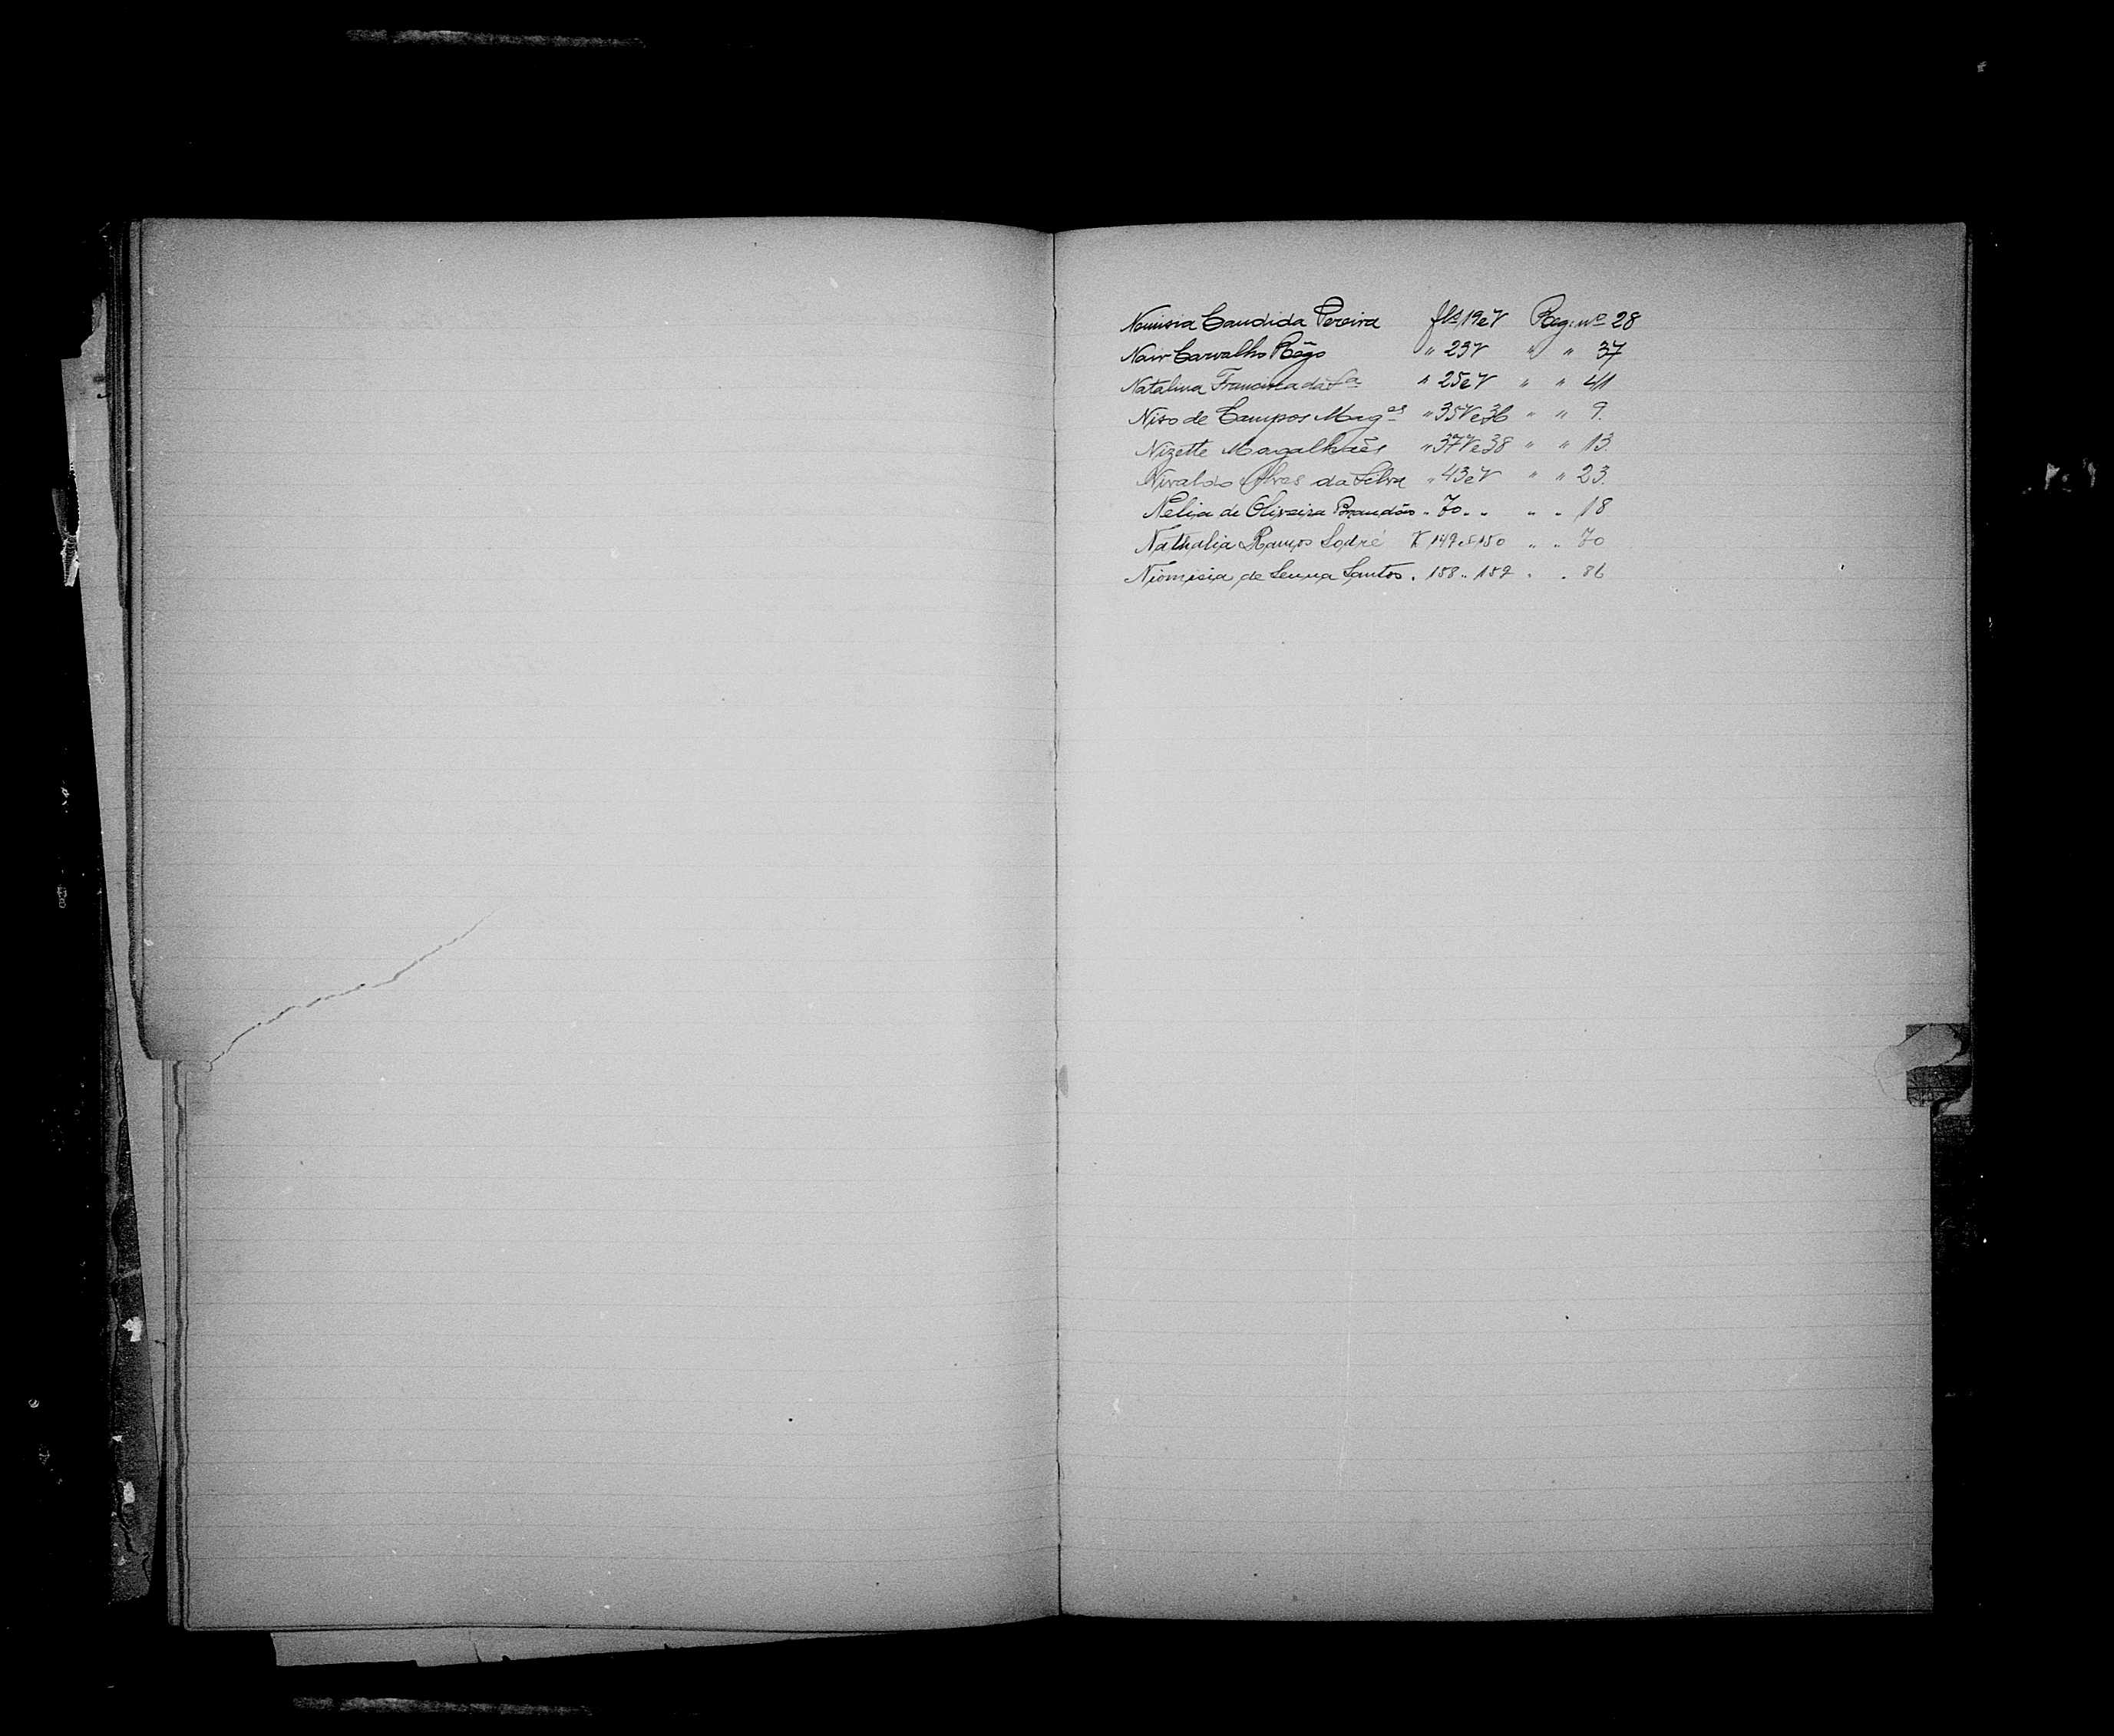 Nemisia Candida Pereira fls 19 e V Reg: nº 28
Nair Carvalho Rêgo " 23V " " 37
Natalina Francisca da Sª " 25 e V " " 41
Niso de Campos Mag.es " 35V e 36 " " 9.
Nizette Magalhães " 37V e 38 " " 13.
Nivaldo Alves da Silva " 43 e V " " 23.
Nelia de Oliveira Brandão " 70 " " " " 18
Nathalia Ramos Sodré V 149 e 150 " " 70
Niomisia de Senna Santos . 158 " 159 " . 86